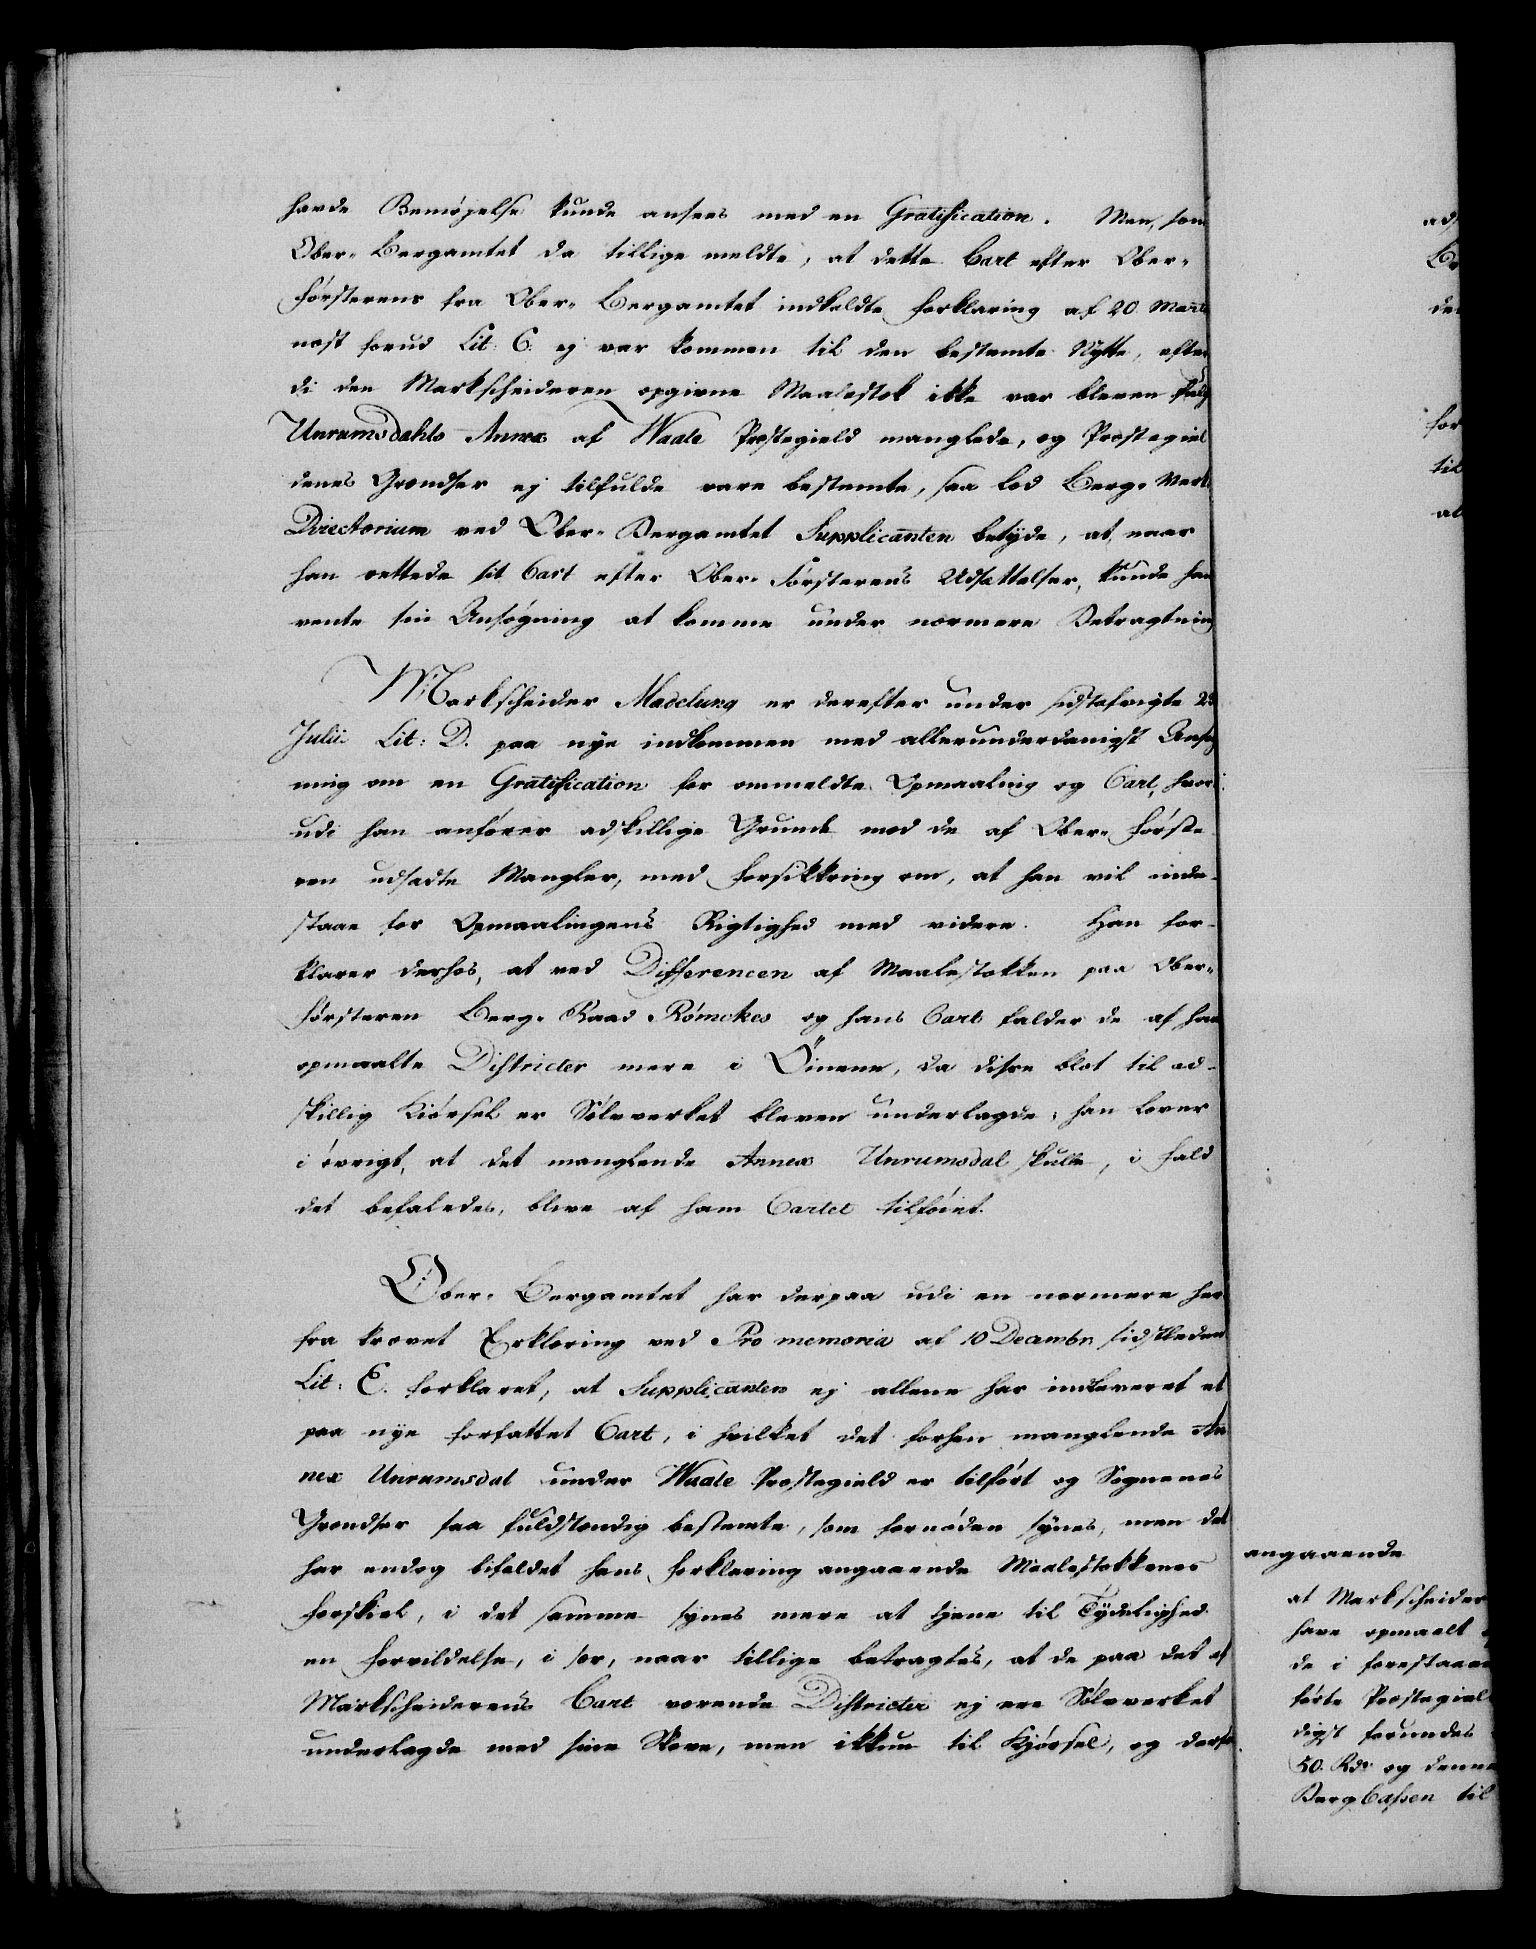 havde Bemøjelse kunde ansees med en Gratification. Men, som
Ober-Bergamtet da tillige meldte, at dette Cart efter Ober-
førsterens fra Ober-Bergamtet indkaldte Forklaring af 20 Martii
næst forud Lit: C. ej var kommen til den bestemte Nytte, efter
di den Markscheideren opgivne Maalestok ikke var bleven fulgt
Unrumsdahls Annex af Waale Præstegield manglede, og Præstegiel
denes Grændser ej tilfulde vare bestemte, saa lod Berg-Verks
Directorium ved Ober-Bergamtet Supplicanten betyde, at naar
han rettede sit Cart efter Ober-Førsterens Udsættelser, kunde han
vente sin Ansøgning at komme under nærmere Betragtning
Markscheider Madelung er derefter under sidstafvigte
Julii Lit: D. paa nye indkommen med allerunderdanigst Ansøg
ning om en Gratification for ommeldte Opmaaling og Cart, hvor
udi han anfører adskillige Grunde mod de af Ober-Første
ren udsadte Mangler, med Forsikkring om, at han vil inde-
staae for Opmaalingens Rigtighed med videre. Han for-
klarer derhos, at ved Differencen af Maalestokken paa Ober-
førsteren Berg-Raad Rómckes og hans Cart falder de af ham
opmaalte Districter mere i Öinene, da disse blot til ad-
skillig Kiørsel er Sølvverket bleven underlagde; han lover
i øvrigt, at det manglende Annex Unrumsdal skulle, i Fald
det befaledes, blive af ham Cartet tilføiet.
Ober-Bergamtet har derpaa udi en nærmere her
fra krævet Erklæring ved Pro memoria af 10 Decembr. sidstleden
Lit: E. forklaret, at Supplicanten ej allene har indleveret et
paa nye forfattet Cart, i hvilket det forhen manglende An
nex Unrumsdal under Waale Præstegield er tilført og Sognenes
Grændser saa fuldstændig bestemte, som fornøden synes, men det
har endog bifaldet hans Forklaring angaaende Maalestokkenes
Forskiel, i det samme synes mere at tjene til Tydelighed
en Forvildelse, i sær, naar tillige betragtes, at de paa det af
Markscheiderens Cart værende Districter ej ere Sølvverket
underlagde med sine Skove, men ikkun til Kjørsel, og derfor
for
til
angaaende
at Markscheider
have opmaalt
de i forestaaen
førte Præstegiel
digst forundes
50 Rdr og denne
Berg Cassen til